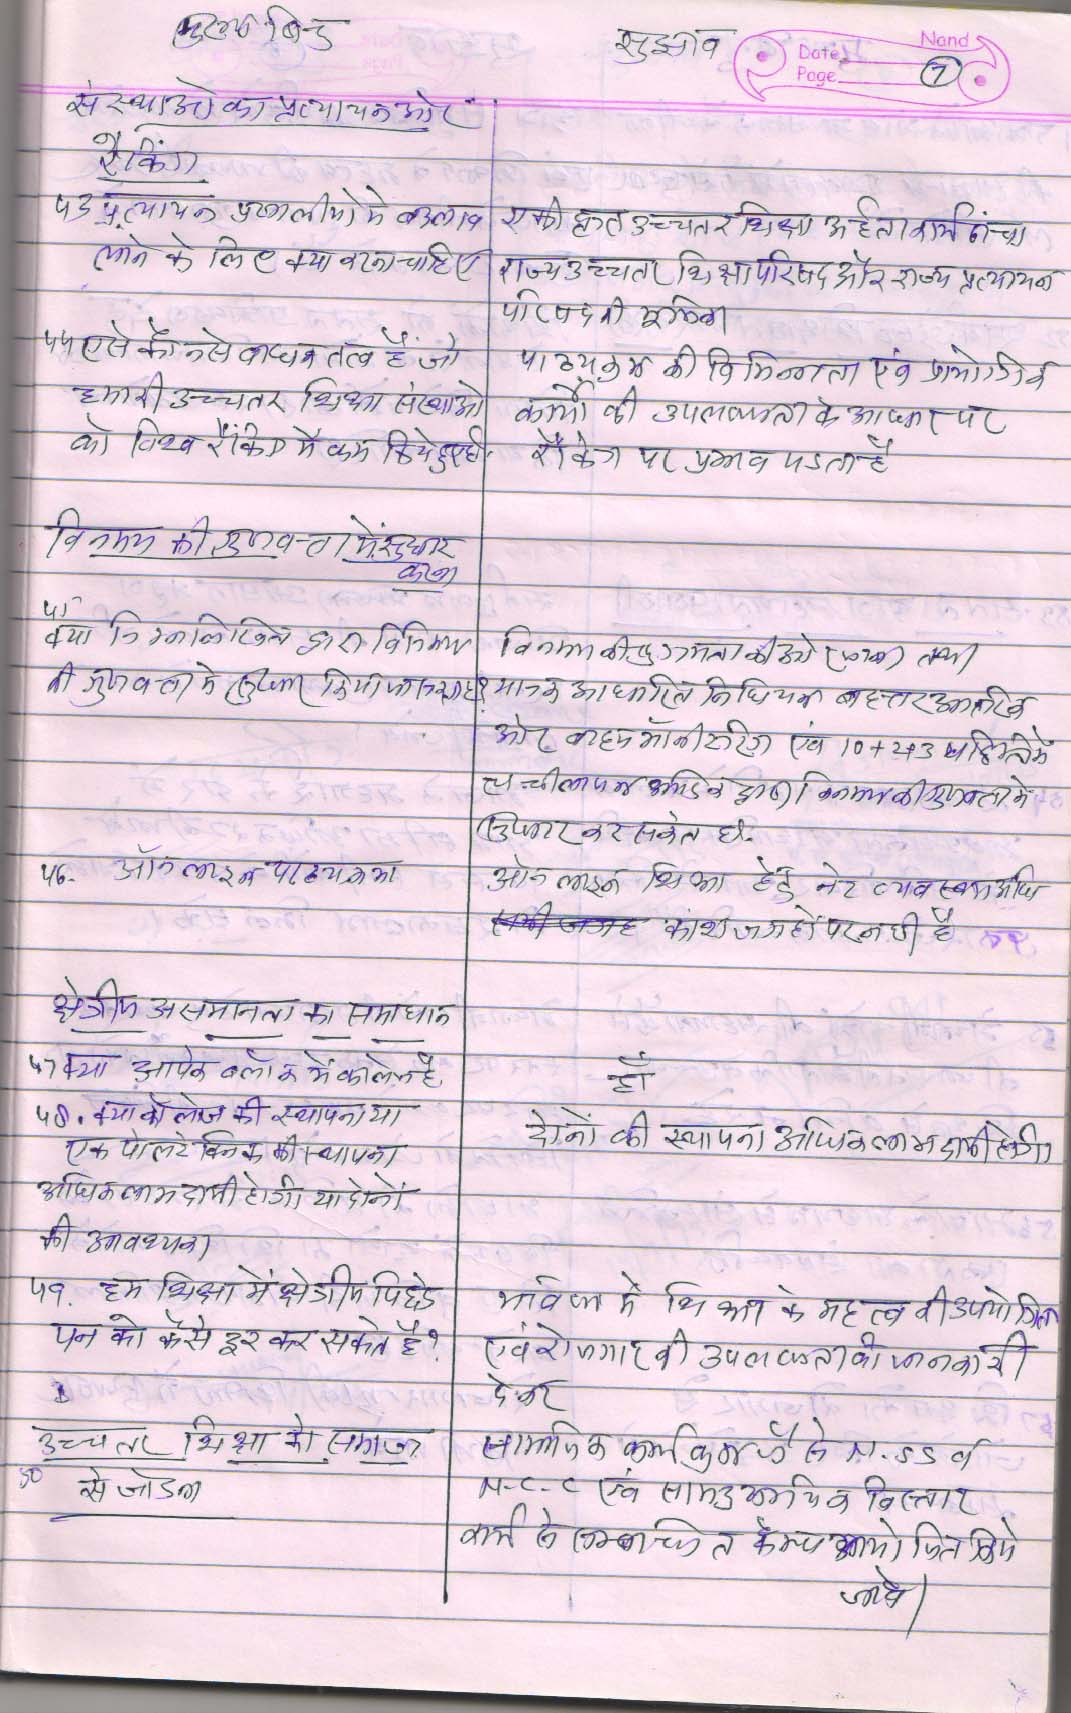 मुख्य बिन्दु
सुझाव
Nand
Date
Page 7
संस्थाओ का प्रत्यायन और
रैकिंग
43 प्रत्यायन प्रणालीयो मे बदलाव
लाने के लिए क्या करना चाहिए
एकीकृत उच्चतर शिक्षा अर्हता कार्य ढांचा
राज्य उच्चतर शिक्षा परिषद और राज्य प्रत्यायन
परिषद की भूमिका
44 एसे कौनसे बाधक तत्व है जो
हमारी उच्चतर शिक्षा संस्थाओ
को विश्व रैंकिग मे कम किये हुए है.
पाठ्यक्रम की विभिन्नता एवं प्रायोगिक
कार्यो की उपलब्धता के आधार पर
रैंकिग पर प्रभाव पडता है
विनमय की गुणवत्ता में सुधार
करना
45
क्या निम्नलिखित द्वारा विनिमय
की गुणवत्ता मे सुधार किया जा सकता है?
विनमय की सुगमता की ओर तथा
मानक आधारित निधियन बहत्तर आन्तरिक
ओर बाहय मॉनीटरिंग एवं 10+2+3
लचीलापन द्वारा विनमय की गुणवत्ता मे
सुधार कर सकते है.
46. ऑनलाइन पाठ्यक्रम
ऑनलाइन शिक्षा हेतु नेट व्यवस्था अभि
सभी जगह काशी जगहों पर नही है
क्षेत्रीय असमानता का समाधान
47 क्या आपके ब्लॉक में कॉलेज है
हाँ
48. क्या कॉलेज की स्थापना या
एक पोलटेक्निक की स्थापना
अधिक लाभदायी होगी या दोनों
की आवश्यक
दोनों की स्थापना अधिक लाभदायी होगी।
49. हम शिक्षा में क्षेत्रीय पिछडे
पन को कैसे दूर कर सकते है?
भविष्य में शिक्षा के महत्व की उपयोगिता
एवं रोजगार की उपलब्धता की जानकारी
देकर
उच्चतर शिक्षा को समाज
50 से जोडना
सामाजिक कार्यक्रम जैसे N.SS व
N.C.C एवं सामुदायिक विस्तार
कार्य से सम्बन्धित कैम्प आयोजित किये
जावे।